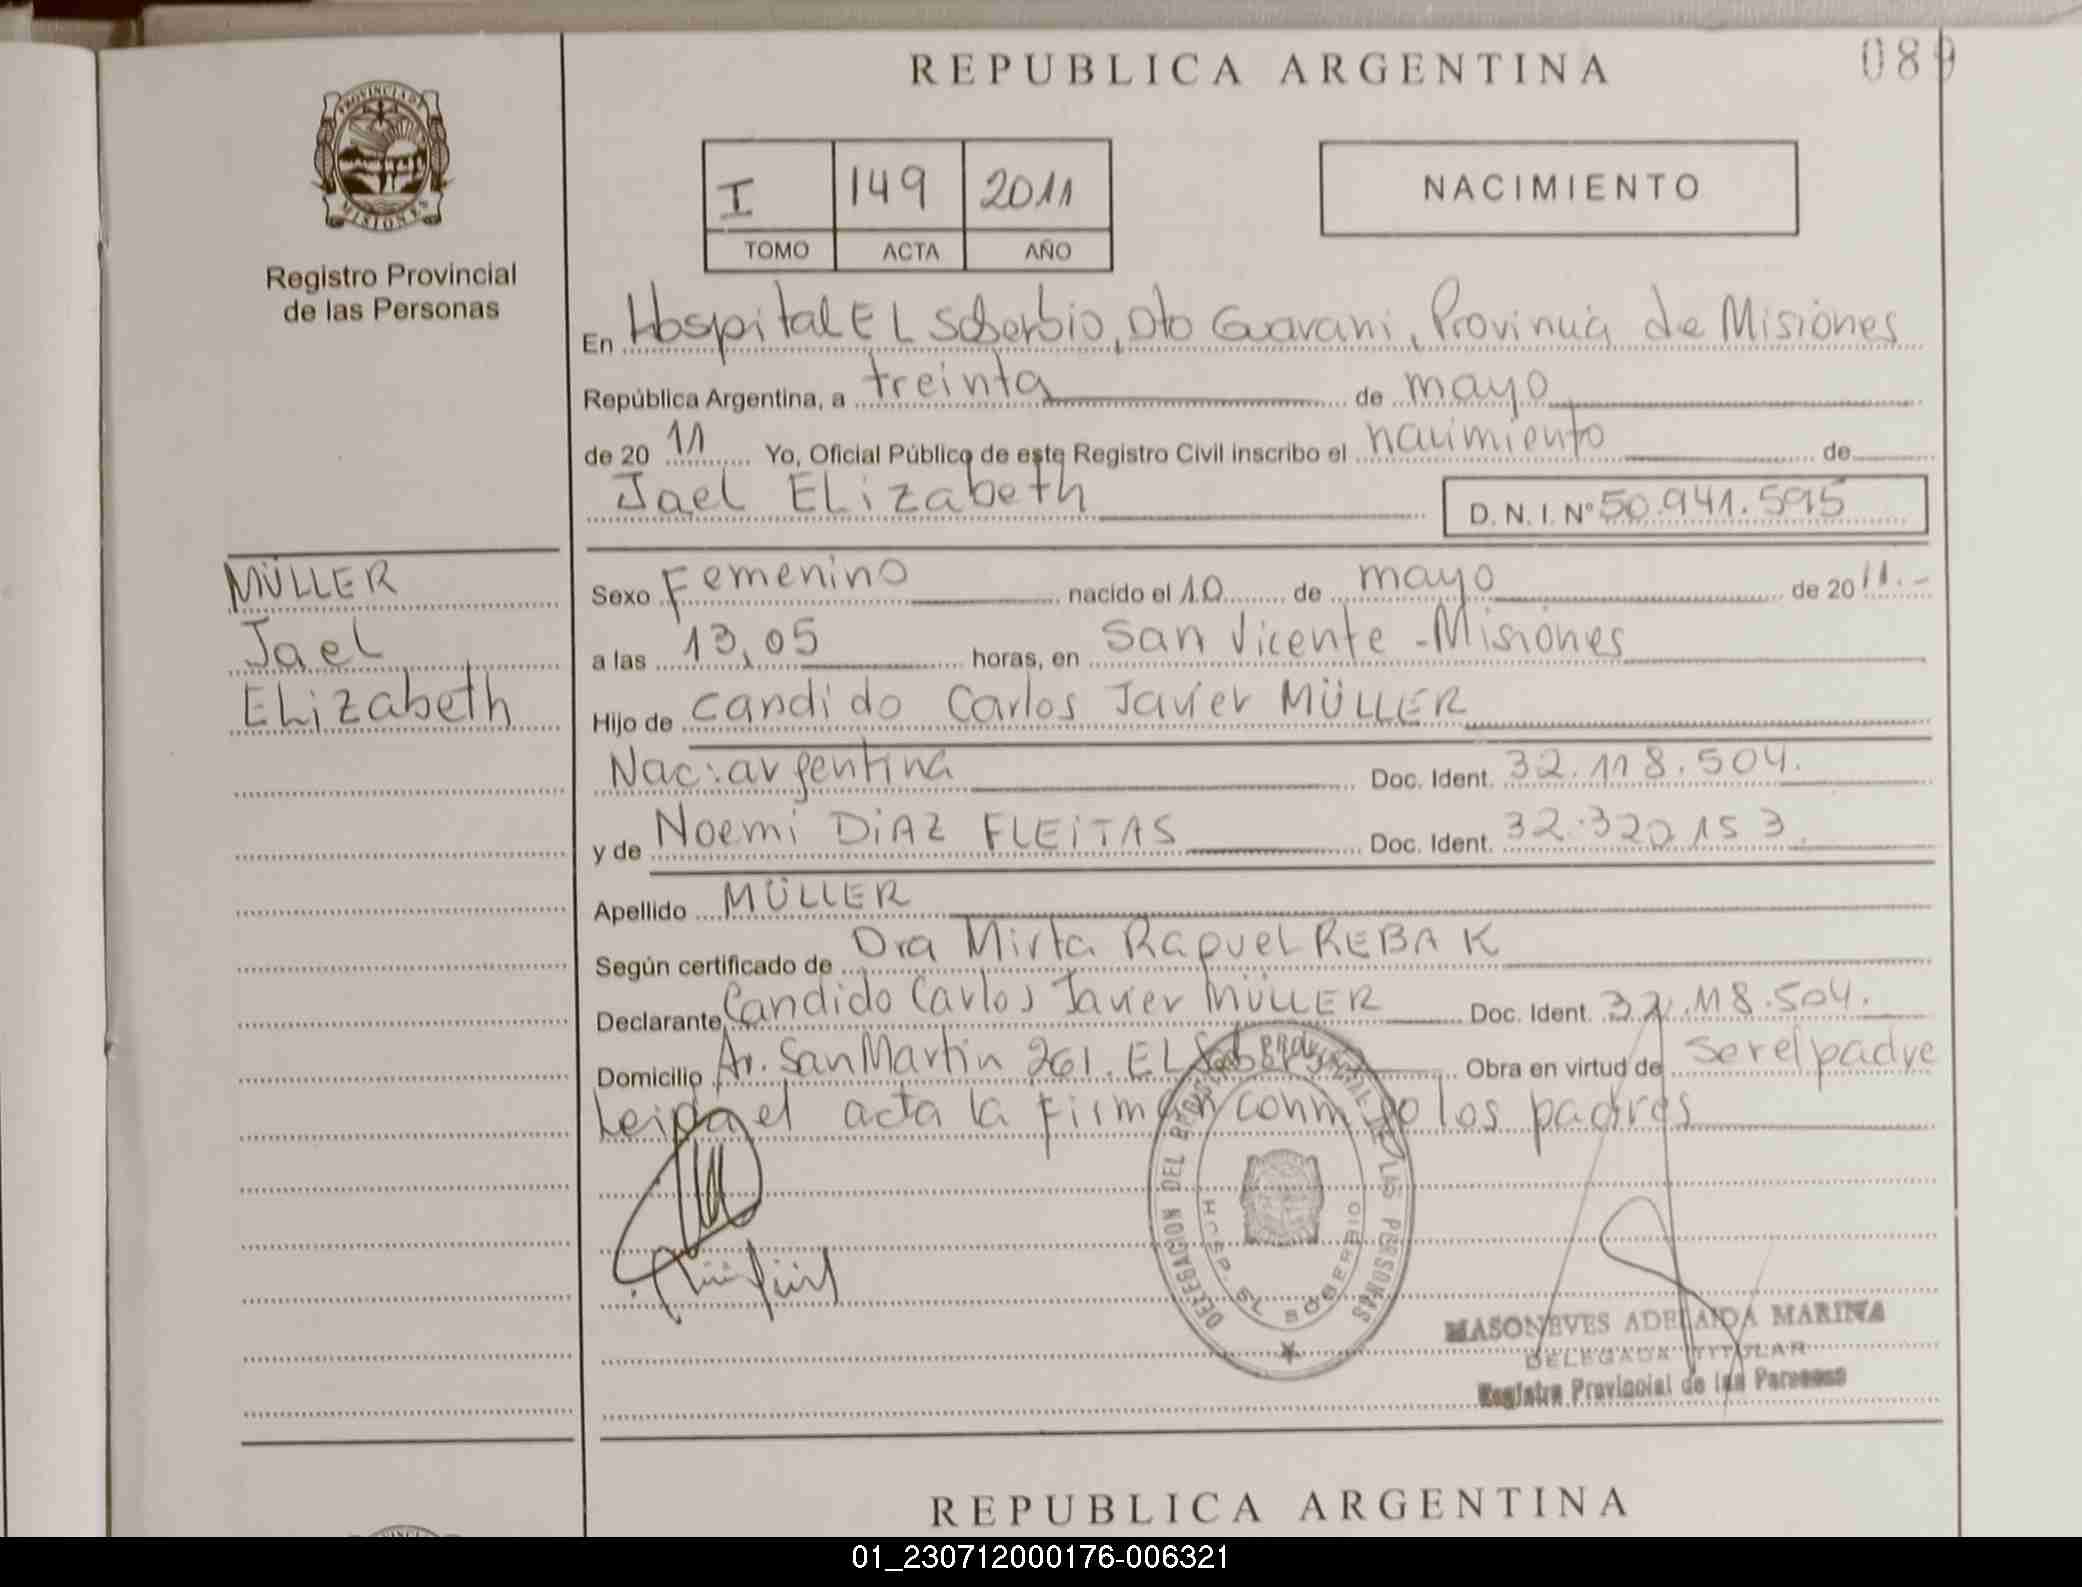 REPUBLICA ARGENTINA
089
PROVINCIA DE
MISIONES
Registro Provincial
de las Personas
I 149 2011
TOMO ACTA AÑO
NACIMIENTO
En Hospital EL Soberbio, Dto Guarani, Provincia de Misiones
República Argentina, a treinta de mayo
de 20 11 Yo, Oficial Público de este Registro Civil inscribo el nacimiento de
Jael ELizabeth
D. N. I. N° 50.941.595
MÜLLER
Jael
ELizabeth
Sexo Femenino nacido el 10 de mayo de 20 11.-
a las 13,05 horas, en San Vicente - Misiones
Hijo de Candido Carlos Javier MÜLLER
Nac: argentina Doc. Ident. 32.118.504.
y de Noemi DiAZ FLEiTAS Doc. Ident. 32.320.153.
Apellido MÜLLER
Según certificado de Dra Mirta Raquel REBAK
Declarante Candido Carlos Javier MÜLLER Doc. Ident. 32.118.504.
Domicilio Av. San Martin 261. EL Soberbio Obra en virtud de ser el padre
Leida el acta la firman conmigo los padres
DELEGACION DEL REGISTRO PROVINCIAL DE LAS PERSONAS
HOSP. EL SOBERBIO
MASONEVES ADELAIDA MARINA
DELEGADA TITULAR
Registro Provincial de las Personas
REPUBLICA ARGENTINA
01_230712000176-006321